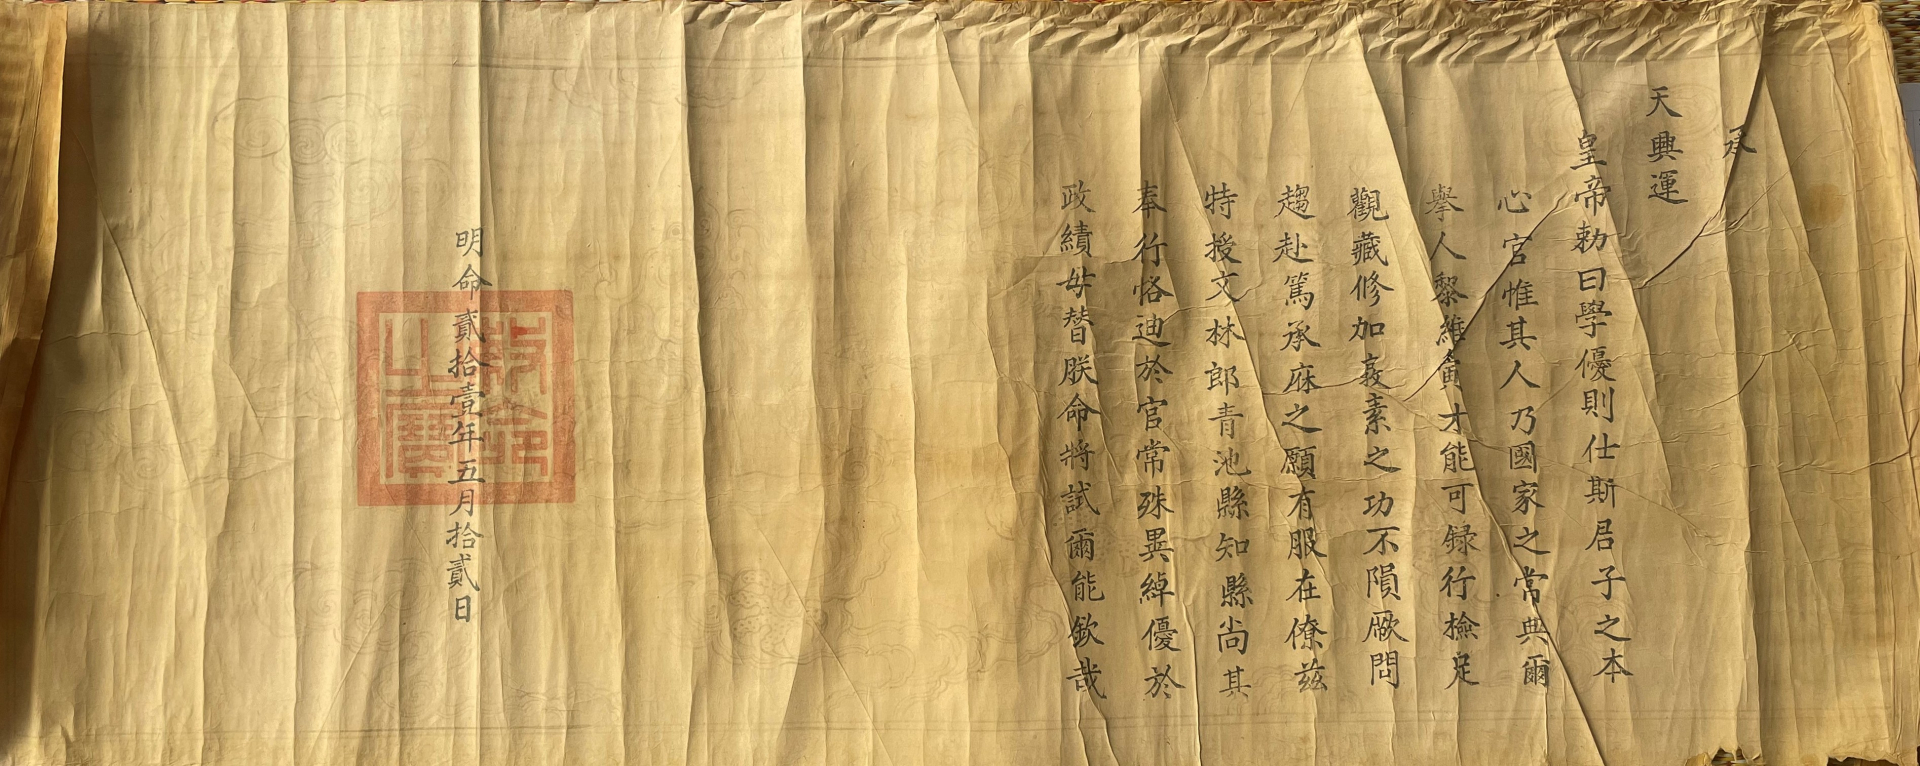 承
天興運
皇帝勅曰學優則仕斯君子之本
心官惟其人乃國家之常典爾
舉人黎維寅才能可録行檢足
觀藏修加義素之功不隕厥問
趨赴篤承庥之願有服在僚茲
特授文林郎青池縣知縣尚其
奉行恪迪於官常殊異綽優於
政績毋替朕命將試爾能欽哉
明命貳拾壹年五月拾貳日
敕命之寶